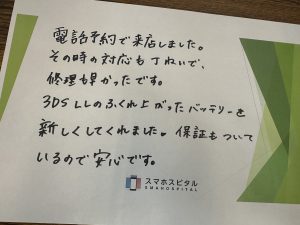 電話予約で来店しました。
その時の対応も丁ねいで、
修理も早かったです。
3DS LLのふくれ上がったバッテリーを
新しくしてくれました。保証もついて
いるので安心です。
スマホスピタル
SMAHOSPITAL